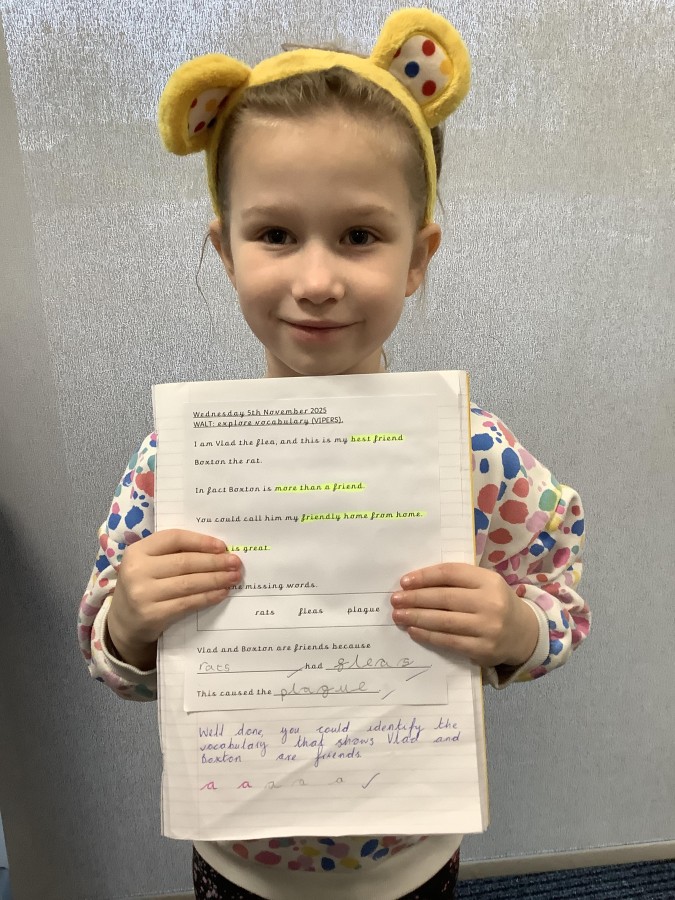 Wednesday 5th November 2025
WALT: explore vocabulary (VIPERS).
I am Vlad the flea, and this is my best friend
Boxton the rat.
In fact Boxton is more than a friend.
You could call him my friendly home from home.
is great.
missing words.
rats fleas plague
Vlad and Boxton are friends because
rats had fleas
This caused the plague
Well done, you could identify the
vocabulary that shows Vlad and
Boxton are friends.
a a a a a ✓